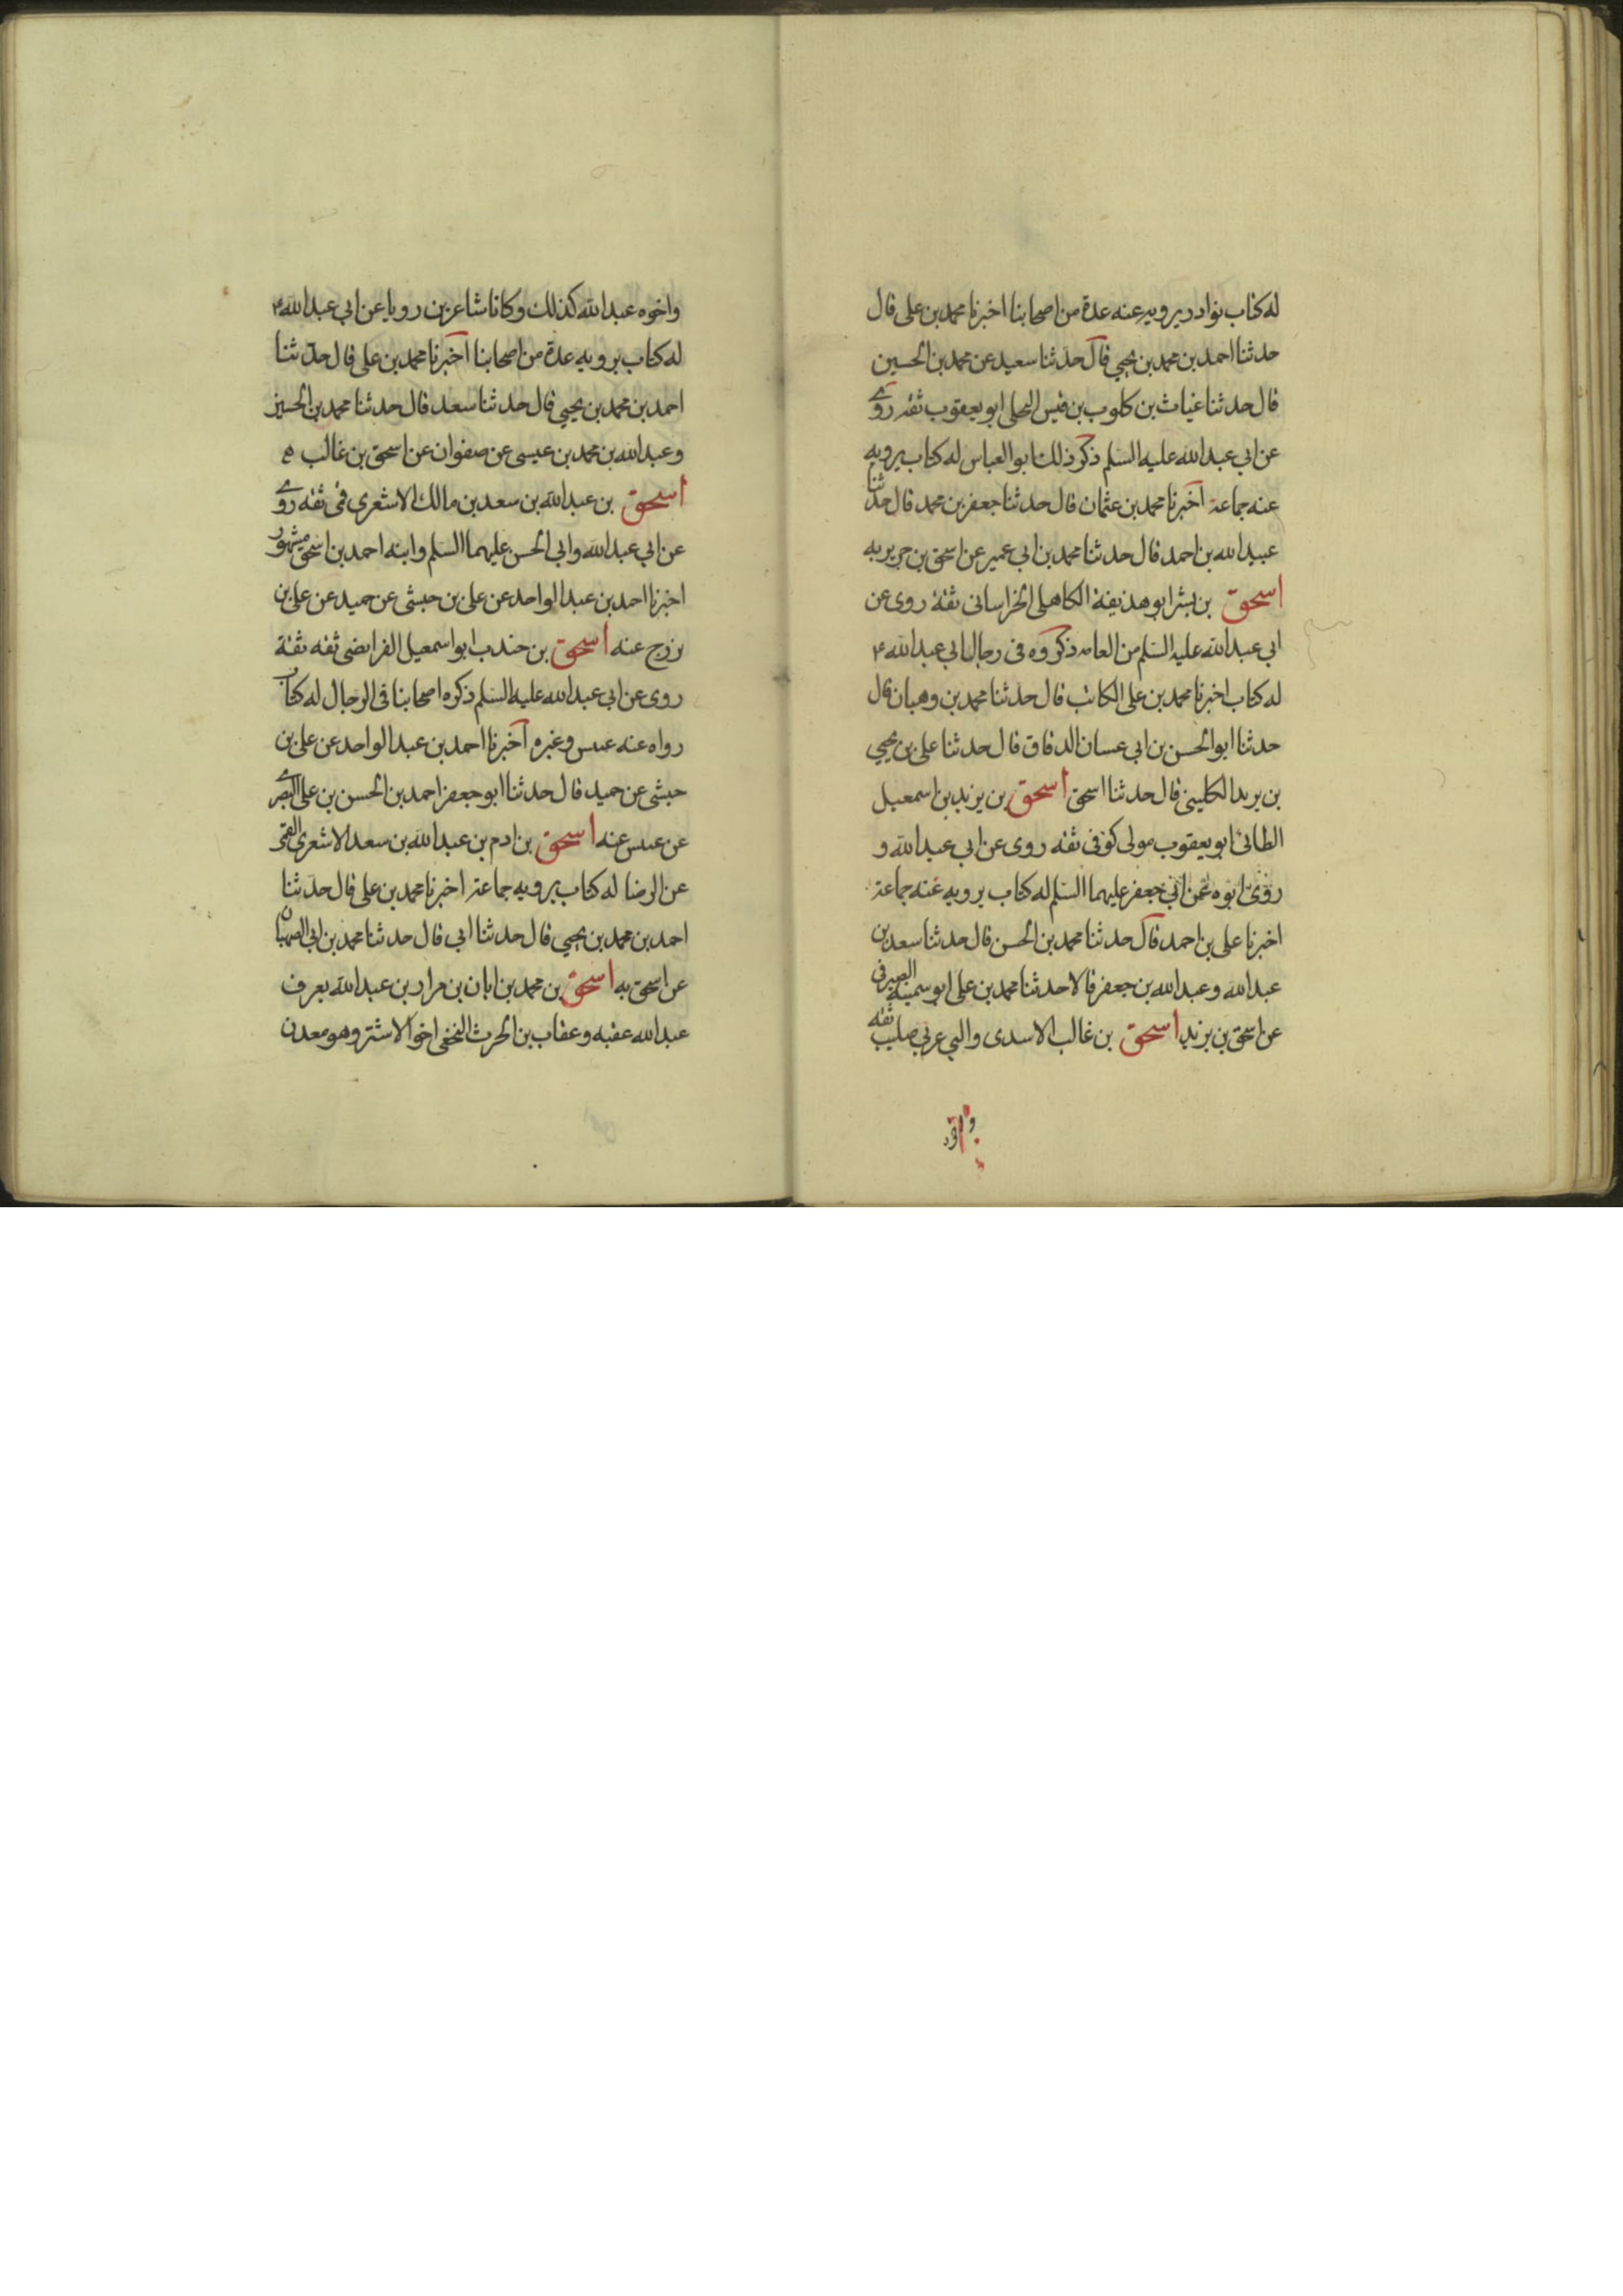 له كتاب نوادر يرويه عنه عدة من اصحابنا اخبرنا محمد بن على قال
حدثنا احمد بن محمد بن يحيى قال حدثنا سعيد عن محمد بن الحسين
قال حدثنا غياث بن كلوب بن قيس البجلى ابو يعقوب ثقه روى
عن ابي عبد الله عليه السلم ذكر ذلك ابو العباس له كتاب يرويه
عنه جماعة اخبرنا محمد بن عثمان قال حدثنا جعفر بن محمد قال حدثنا
عبيد الله بن احمد قال حدثنا محمد بن ابي عمير عن اسحق بن جرير به
اسحق بن بشر ابو حذيفة الكاهلى الخراسانى ثقة روى عن
ابى عبد الله عليه السلم من العامه ذكروه فى رجال ابي عبد الله ع
له كتاب اخبرنا محمد بن على الكاتب قال حدثنا محمد بن وهبان قال
حدثنا ابو الحسن بن ابى عسان الدقاق قال حدثنا على بن يحيى
بن يريد الكلينى قال حدثنا اسحق اسحق بن يزيد بن اسمعيل
الطائى ابو يعقوب مولى كوفى ثقه روى عن ابي عبد الله و
روى ابوه عن ابي جعفر عليهما السلم له كتاب يرويه عنه جماعة
اخبرنا على بن احمد قال حدثنا محمد بن الحسن قال حدثنا سعد بن
عبد الله و عبد الله بن جعفر قالا حدثنا محمد بن على ابو سمينة الصيرفى
عن اسحق بن يزيد اسحق بن غالب الاسدى والبى عربى صليب ثقه
واخوه عبد الله كذلك وكانا شاعرين رويا عن ابي عبد الله ع
له كتاب يرويه عدة من اصحابنا اخبرنا محمد بن على قال حدثنا
احمد بن محمد بن يحيى قال حدثنا سعد قال حدثنا محمد بن الحسين
وعبد الله بن محمد بن عيسى عن صفوان عن اسحق بن غالب ه
اسحق بن عبد الله بن سعد بن مالك الاشعرى قمى ثقه روى
عن ابي عبد الله وابي الحسن عليهما السلم وابنه احمد بن اسحق مشهور
اخبرنا احمد بن عبد الواحد عن على بن حبشى عن حميد عن على بن
بزرج عنه اسحق بن جندب ابو اسمعيل الفرائضى ثقه ثقة
روى عن ابي عبد الله عليه السلم ذكره اصحابنا فى الرجال له كتاب
رواه عنه عبس وغيره اخبرنا احمد بن عبد الواحد عن على بن
حبشى عن حميد قال حدثنا ابو جعفر احمد بن الحسن بن على البصرى
عن عبس عنه اسحق بن ادم بن عبد الله بن سعد الاشعرى القمى
عن الرضا له كتاب يرويه جماعة اخبرنا محمد بن على قال حدثنا
احمد بن محمد بن يحيى قال حدثنا ابي قال حدثنا محمد بن ابي الصهبان
عن اسحق به اسحق بن محمد بن ابان بن مرار بن عبد الله يعرف
عبد الله عقبه و عقاب بن الحرث النخعى اخو الاشتر وهو معدن